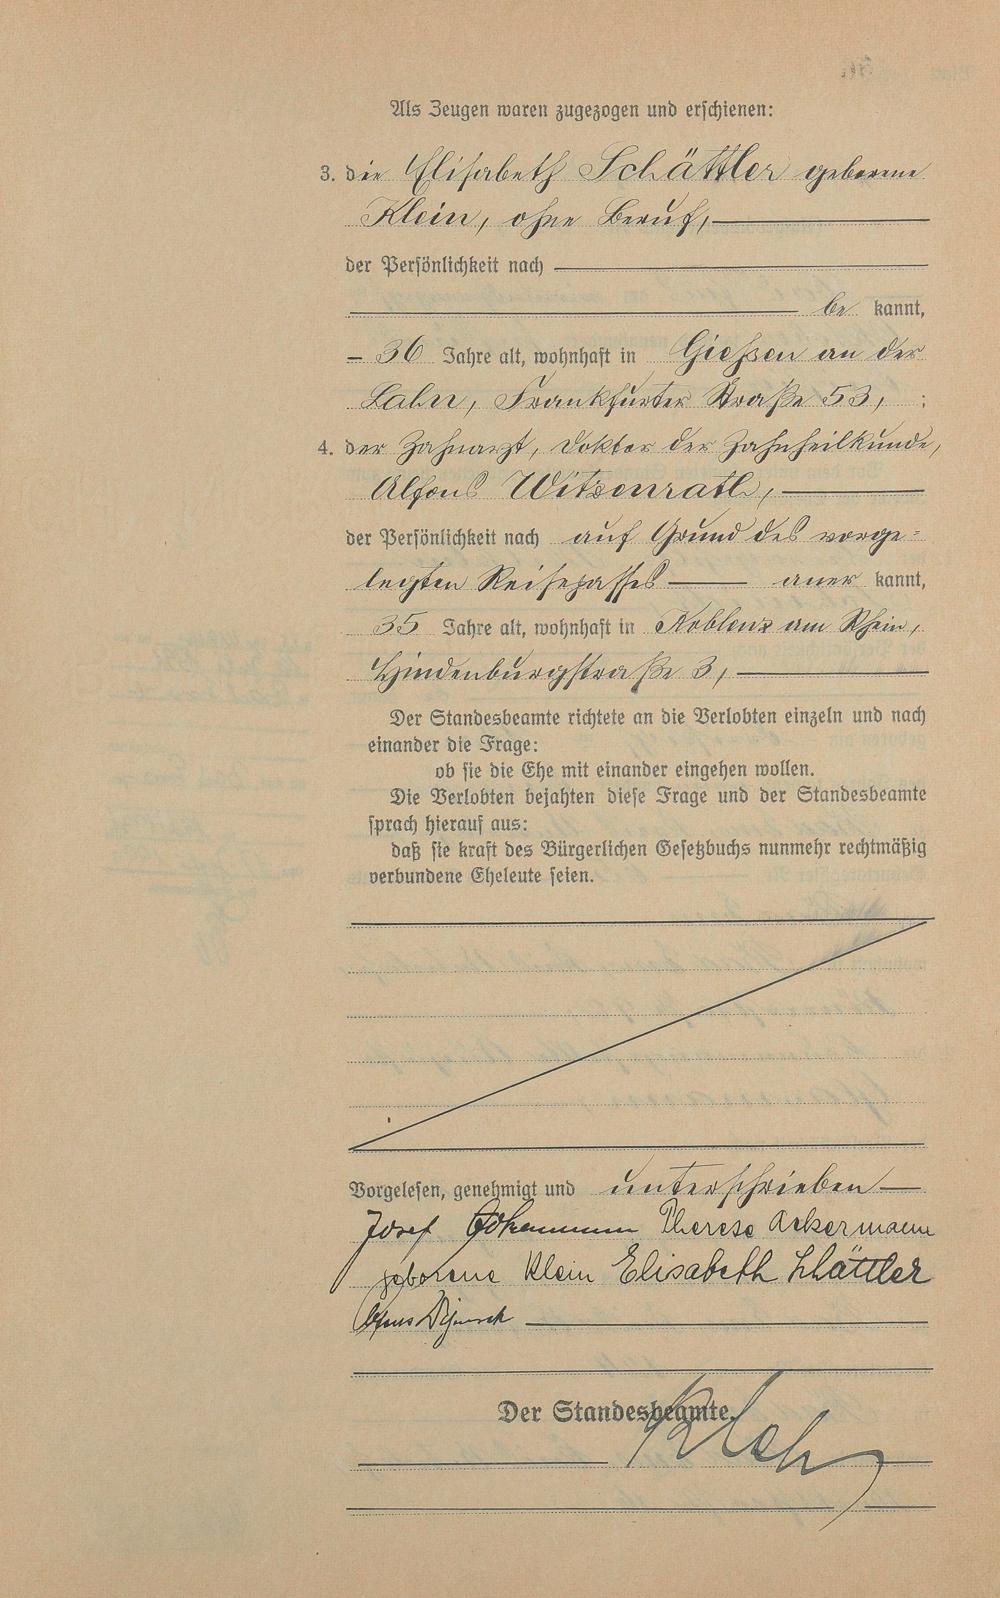 Als Zeugen waren zugezogen und erschienen:
3. die Elisabeth Schättler geborene
Klein, ohne Beruf,
der Persönlichkeit nach
be kannt,
36 Jahre alt, wohnhaft in Gießen an der
Lahn, Frankfurter Straße 53, ;
4. der Zahnarzt, Doktor der Zahnheilkunde,
Alfons Witzenrath,
der Persönlichkeit nach auf Grund des vorge-
legten Reisepasses aner kannt,
35 Jahre alt, wohnhaft in Koblenz am Rhein,
Hindenburgstraße 3,
Der Standesbeamte richtete an die Verlobten einzeln und nach
einander die Frage:
ob sie die Ehe mit einander eingehen wollen.
Die Verlobten bejahten diese Frage und der Standesbeamte
sprach hierauf aus:
daß sie kraft des Bürgerlichen Gesetzbuchs nunmehr rechtmäßig
verbundene Eheleute seien.
Vorgelesen, genehmigt und unterschrieben
Josef Ackermann Therese Ackermann
geborene Klein Elisabeth Schättler
Alfons
Der Standesbeamte.